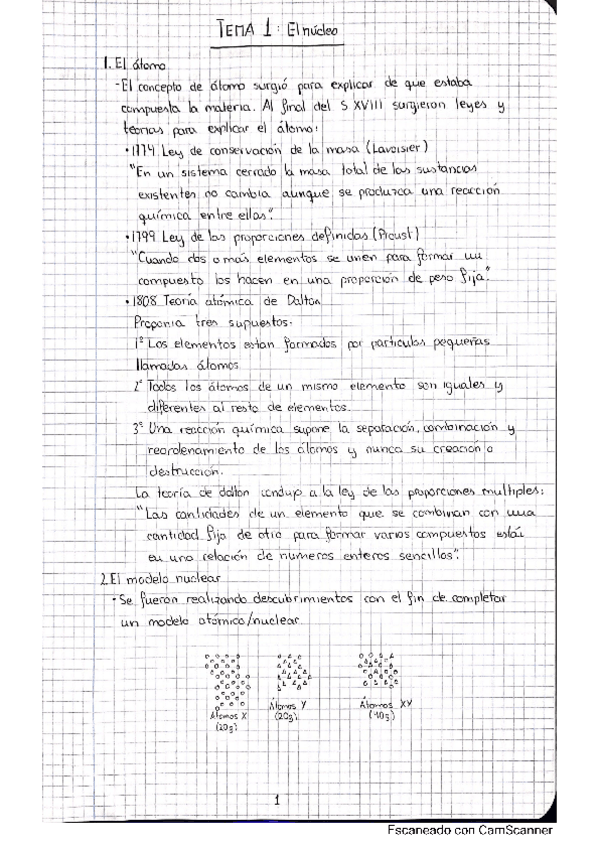 TEMA 1: El núcleo
1. El átomo
-El concepto de átomo surgió para explicar de que estaba
compuesta la materia. Al final del S XVIII surgieron leyes y
teorías para explicar el átomo:
•1774 Ley de conservación de la masa (Lavoisier)
"En un sistema cerrado la masa total de las sustancias
existentes no cambia aunque se produzca una reacción
química entre ellas".
•1799 Ley de las proporciones definidas (Proust)
"Cuando dos o más elementos se unen para formar un
compuesto los hacen en una proporción de peso fija".
•1808 Teoría atómica de Dalton
Proponía tres supuestos.
1º Los elementos estan formados por partículas pequeñas
llamadas átomos
2º Todos los átomos de un mismo elemento son iguales y
diferentes al resto de elementos.
3º Una reacción química supone la separación, combinación y
reordenamiento de los átomos y nunca su creación o
destrucción.
La teoría de dalton condujo a la ley de las proporciones multiples:
"Las cantidades de un elemento que se combinan con una
cantidad fija de otro para formar varios compuestos están
en una relación de numeros enteros sencillos".
2. El modelo nuclear
•Se fueron realizando descubrimientos con el fin de completar
un modelo atómico/nuclear
Átomos X
(20g)
Átomos Y
(20g)
Átomos XY
(40g)
1
Escaneado con CamScanner